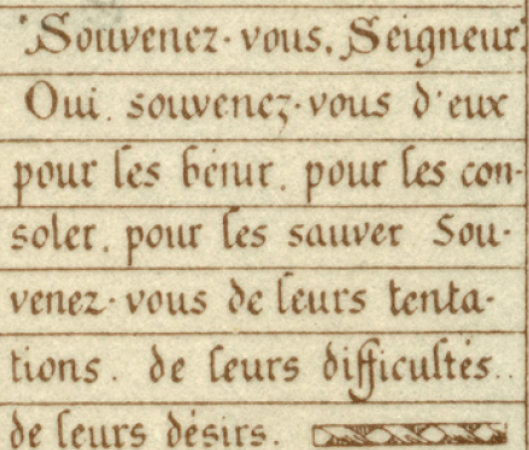 "Souvenez-vous, Seigneur
Oui, souvenez-vous d'eux
pour les bénir, pour les con-
soler, pour les sauver Sou-
venez-vous de leurs tenta-
tions, de leurs difficultés..
de leurs désirs.